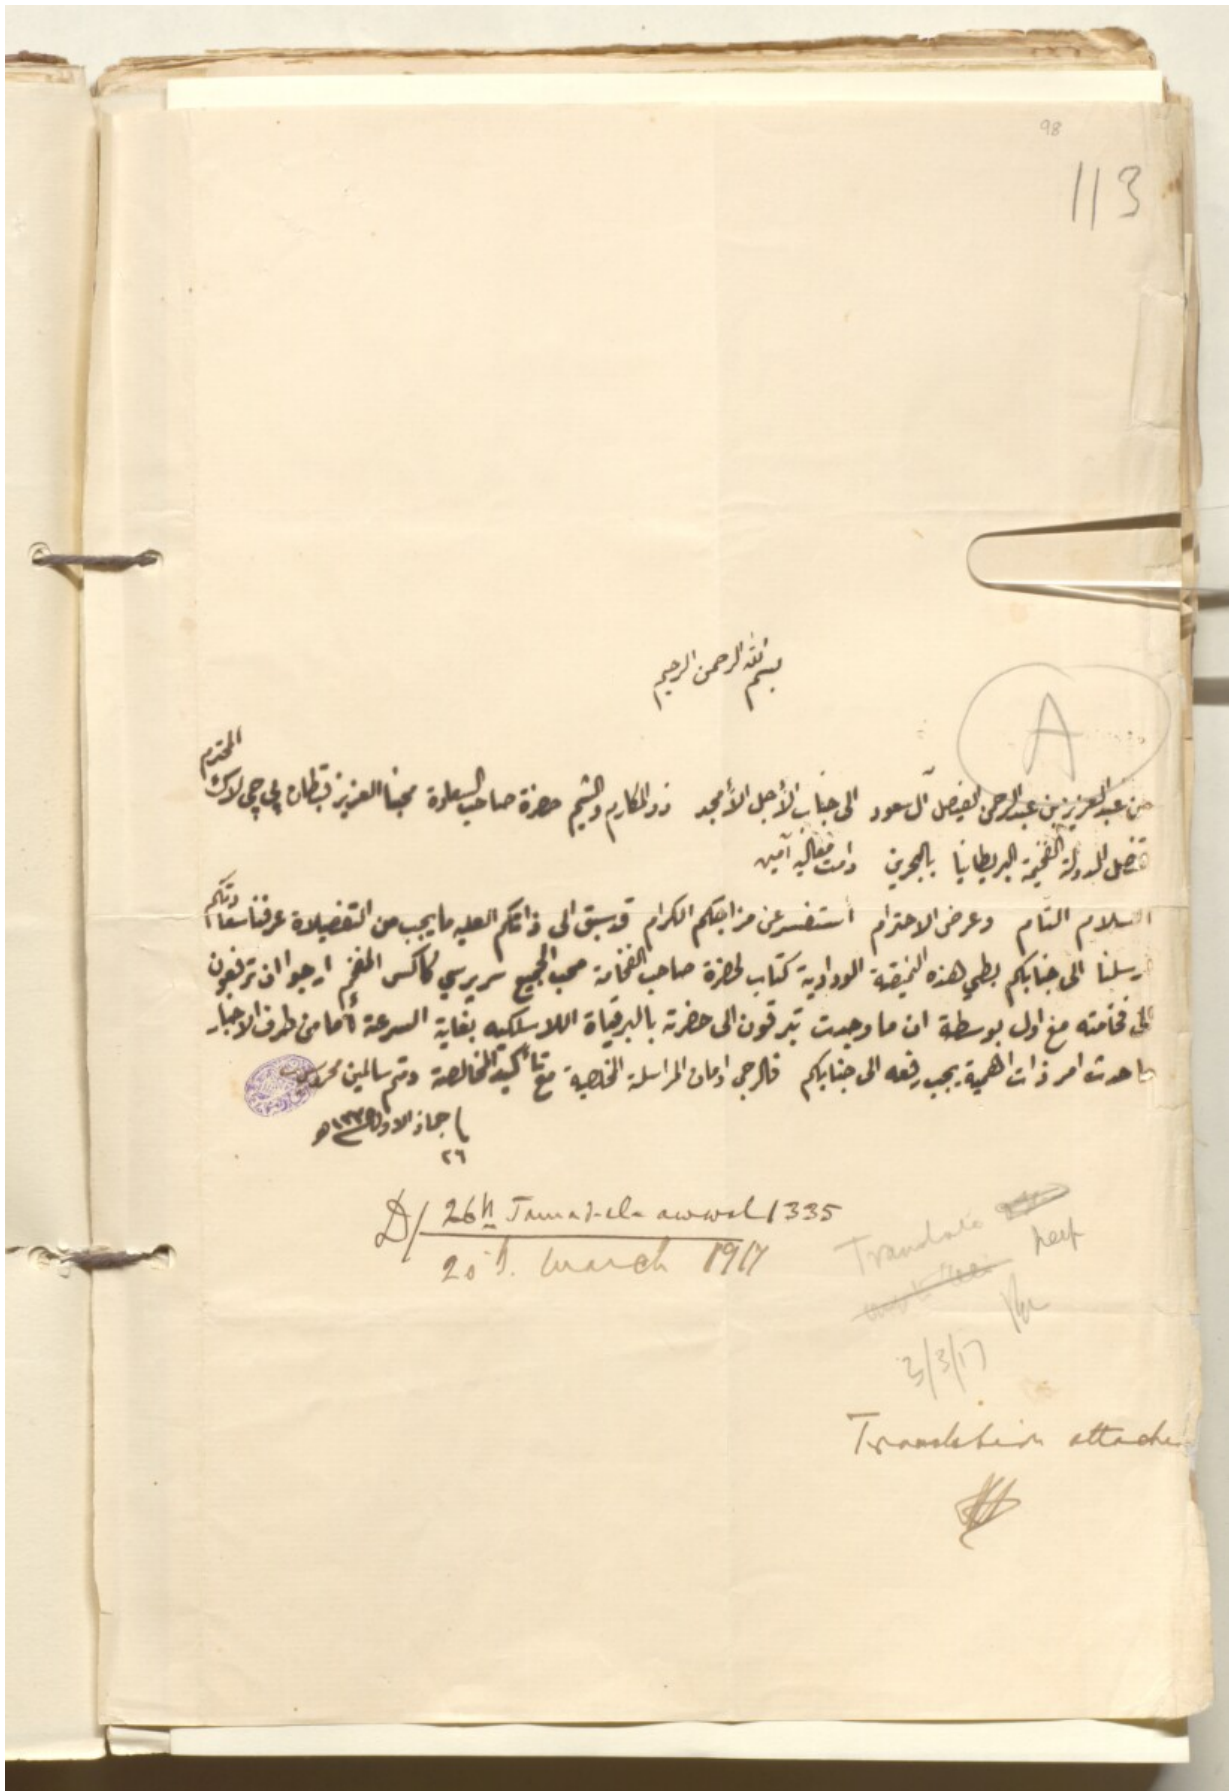 98
113
بسم الله الرحمن الرحيم
A
المحترم
من عبد العزيز بن عبد الرحمن الفيصل آل سعود الى جناب الأجل الأمجد ذو المكارم والشيم حضرة صاحب السعادة محبنا العزيز قبطان پي جي لاك
قنصل الدولة الفخيمة البريطانيا بالبحرين دامت معاليه آمين
السلام التام وعرض الاحترام استفسر عن مزاجكم الكرام قد سبق الى ذاتكم العليه ما يجب من التفضيلاة عرفنا سعادتكم
ارسلنا الى جنابكم بطي هذه النميقة الودادية كتاب لحضرة صاحب الفخامة محب الجميع سر پرسي كاكس المفخم ارجوا ان ترفعون
الى فخامته مع اول بوسطة ان ما وجدت تبرقون الى حضرته بالبرقياة اللاسلكيه بغاية السرعة أما من طرف الاخبار
ما حدث امر ذات اهمية يجب رفعه الى جنابكم فالرجى ادمان المراسلة الخاصية مع تأكيد المخالصة ودمتم سالمين محروسين
جماد الاول ١٣٣٥ هـ
٢٦
D/ 26th Jamad-el-awwal 1335
20th. March 1917
Translate
keep
3/3/17
Translation attache